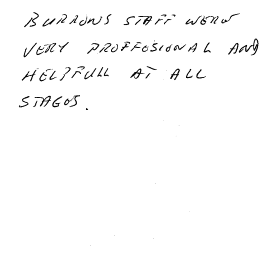 BURRONS STAFF WERE
VERY PROFFOSIONAL AND
HELPFULL AT ALL
STAGES.